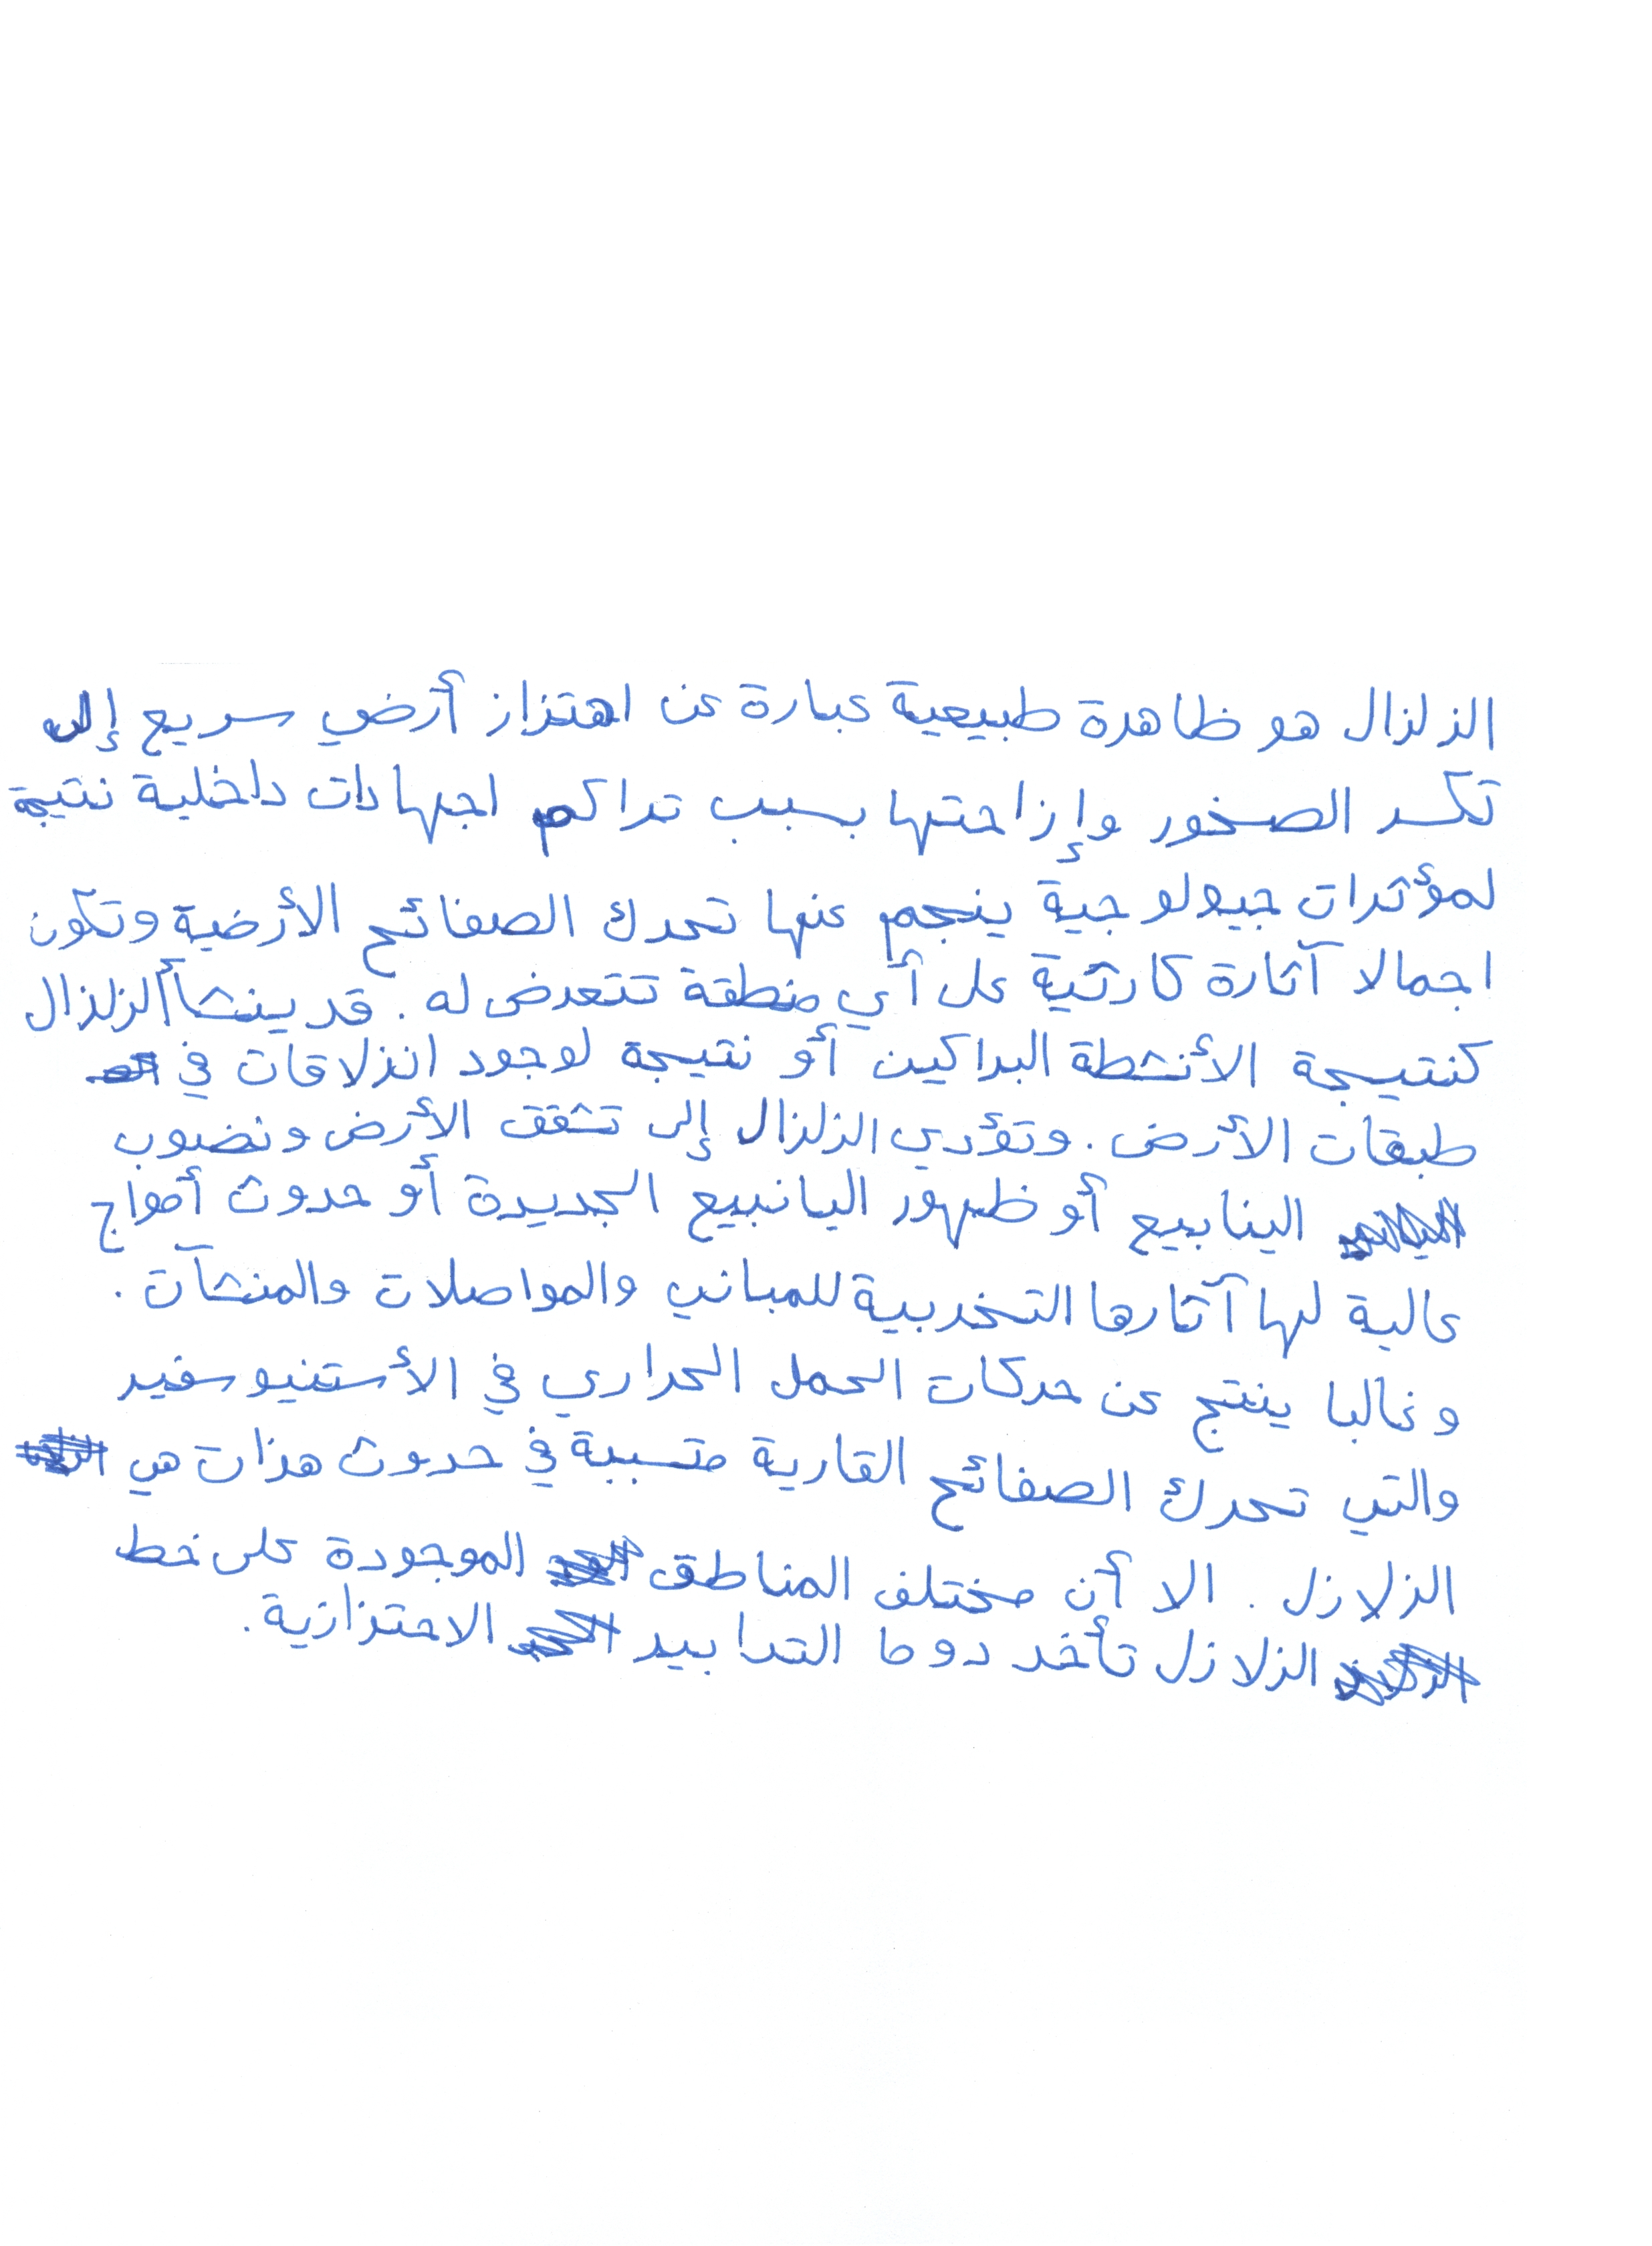 الزلزال هو ظاهرة طبيعية عبارة عن اهتزاز أرضي سريع إلى
تكسر الصخور وإزاحتها بسبب تراكم اجهادات داخلية نتيجة
لمؤثرات جيولوجية ينجم عنها تحرك الصفائح الأرضية وتكون
اجمالا آثارة كارثية على أي منطقة تتعرض له. قد ينشأ ألزلزال
كنتيجة الأنشطة البراكين أو نتيجة لوجود انزلاقات في
طبقات الأرض. وتؤدي الزلزال إلى تشقق الأرض ونضوب
الينابيع أو ظهور اليانبيع الجديدة أو حدوث أمواج
عالية لها آثارها التخريبية للمباني والمواصلات والمنشآت.
وغالبا ينتج عن حركات الحمل الحراري في الأستنيوسفير
والتي تحرك الصفائح القارية متسببة في حدوث هزات هي
الزلازل. الا أن مختلف المناطق الموجودة على خط
الزلازل تأخد دوما التدابير الاحتزازية.